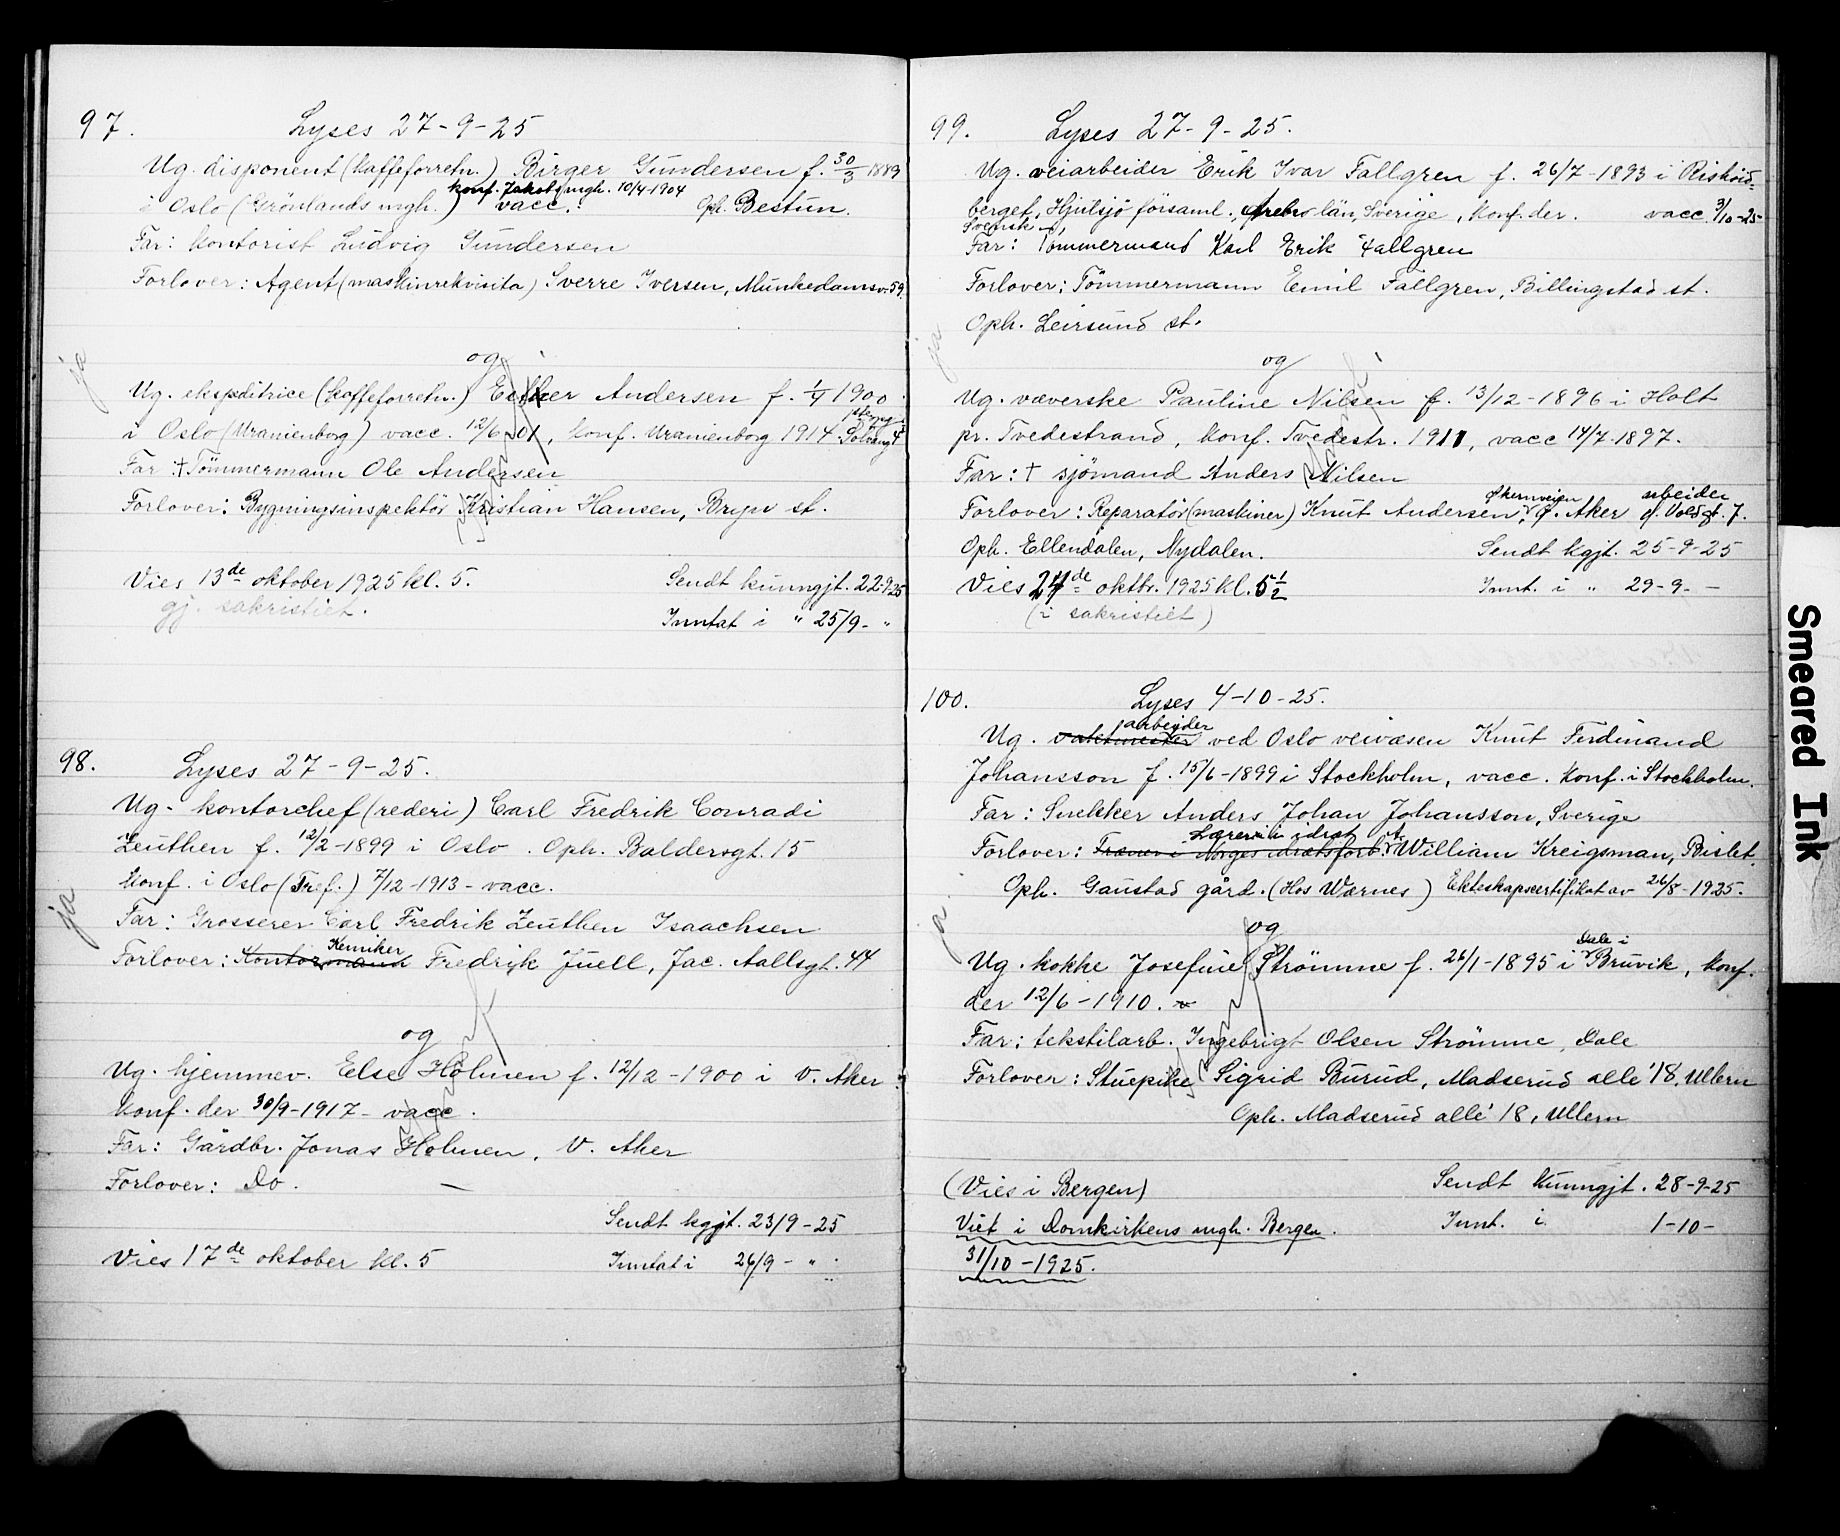 97. Lyses 27-9-25
Ug. disponent (kaffeforretn.) Birger Gundersen f. 30/3 1889
konf. Jakobs mgh. 10/4-1904
i Oslo (Grönlands mgh.) vacc. Oph. Bestun.
Far: kontorist Ludvig Gundersen
Forlover: Agent (maskinrekvisita) Sverre Iversen, Munkedamsv. 59.
ja
og
Ug. ekspeditrice (kaffeforretn.) Esther Andersen f. 1/4 1900
i Oslo (Uranienborg) vacc. 12/6-01, konf. Uranienborg 1914 Solvang 4
Far: † Tömmermann Ole Andersen
Forlover: Bygningsinspektör Kristian Hansen, Bryn st.
Vies 13de oktober 1925 kl. 5. Sendt kunngjt. 22-9-25
gj. sakristiet. Inntat i " 25/9- "
98. Lyses 27-9-25.
Ug. kontorchef (rederi) Carl Fredrik Conradi
Zeuthen f. 12/2-1899 i Oslo. Oph. Baldersgt. 15
Konf. i Oslo (Tref.) 7/12-1913- vacc.
ja
Far: Grosserer Carl Fredrik Zeuthen Isaachsen
Kemiker
Forlover: Kontormand Fredrik Juell, Jac. Aallsgt. 44
og
Ug. hjemmev. Else Holmen f. 12/12-1900 i V. Aker
Konf. der 30/9-1917- vacc.
Far: Gårdbr. Jonas Holmen, V. Aker
Forlover: Do. —
Sendt kggt. 23/9-25
Vies 17de oktober kl. 5 Inntat i 26/9- "
99. Lyses 27-9-25.
Ug. veiarbeider Erik Ivar Fallgren f. 26/7-1893 i
berget, Hjulsjö församl., Örebro län, Sverige, Konf. der. vacc. 3/10-25
Svensk
Far: Tömmermand Karl Erik Fallgren
Forlover: Tömmermann Emil Fallgren, Billingstad st.
Oph. Leirsund st.
ja
og
Ug. væverske Pauline Nilsen f. 13/12-1896 i Holt
pr. Tvedestrand, konf. Tvedestr. 1911, vacc 14/7-1897.
Far: † sjömand Anders Nilsen
Økernveien arbeider
Forlover: Reparatör (maskiner) Knut Andersen, Ö. Aker Voldgt. 7.
Oph. Ellendalen, Nydalen. Sendt kgjt. 25-9-25
Vies 24de oktbr. 1925 kl. 5 1/2 Innt. i " 29-9- —
(i sakristiet)
100. Lyses 4-10-25.
arbeider
Ug. vaktmester ved Oslo veivæsen Knut Ferdinand
Johansson f. 15/6-1899 i Stockholm, vacc. Konf. i Stockholm.
Far: Snekker Anders Johan Johansson, Sverige
Lærer i idræt
Forlover: Træner i Norges idrætsforb. William Kreigsman, Bislet.
Oph. Gaustad gård. (Hos Wærnes) Ekteskapscertifikat av 26/8-1925.
ja.
og
Dale i
Ug. kokke Josefine Strömme f. 26/1-1895 i Bruvik, konf.
der 12/6-1910.
Far: tekstilarb. Ingebrigt Olsen Strömme, Dale
Forlover: Stuepike Sigrid Burud, Madserud allé 18, Ullern
Oph. Madserud allé 18, Ullern
(Vies i Bergen) Sendt kunngjt. 28-9-25
Viet i Domkirkens mgh. Bergen. Innt. i 1-10-
31/10-1925.
Smeared Ink